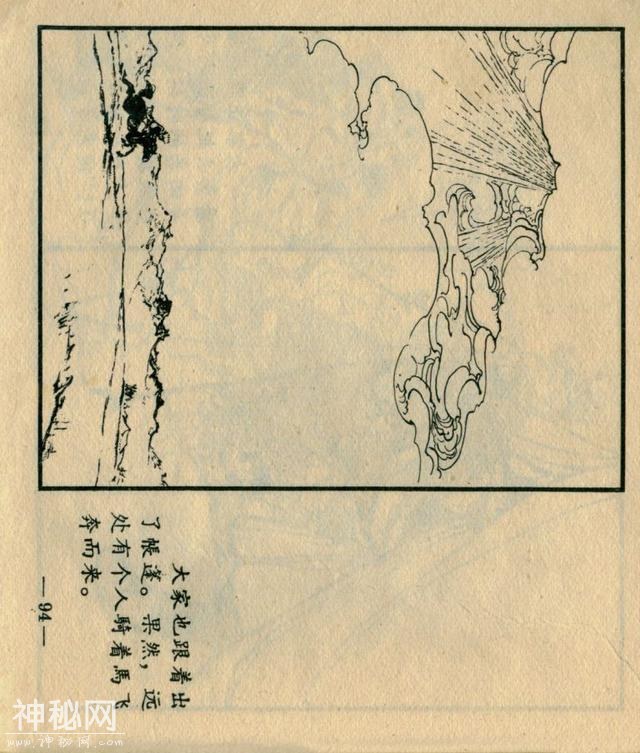 大家也跟着出
了帳蓬。果然，远
处有个人騎着馬飞
奔而来。
—94—
神秘网
www.神秘网.com